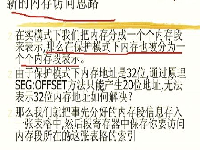 新的内存访问思路
在实模式下我们把内存分成一个个内存段
来表示,那么在保护模式下内存也被分为一
个个内存段表示。
由于保护模式下内存地址是32位,通过原理
SEG:OFFSET方法只能产生20地址,无法
表示32位内存地址如何解决?
那么我们就把事先分好的内存段信息存入
一张表示中,然后段寄存器中保存索要访问
内存段所在的这张表格的索引